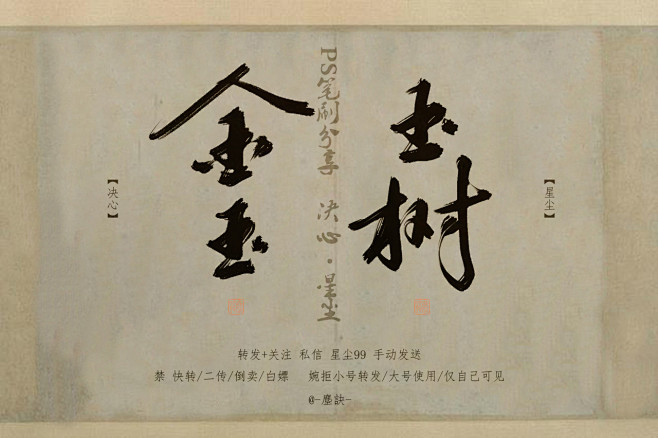 【决心】
金玉
PS笔刷分享 决心·星尘
玉树
【星尘】
转发+关注 私信 星尘99 手动发送
禁 快转/二传/倒卖/白嫖 婉拒小号转发/大号使用/仅自己可见
@-塵訣-